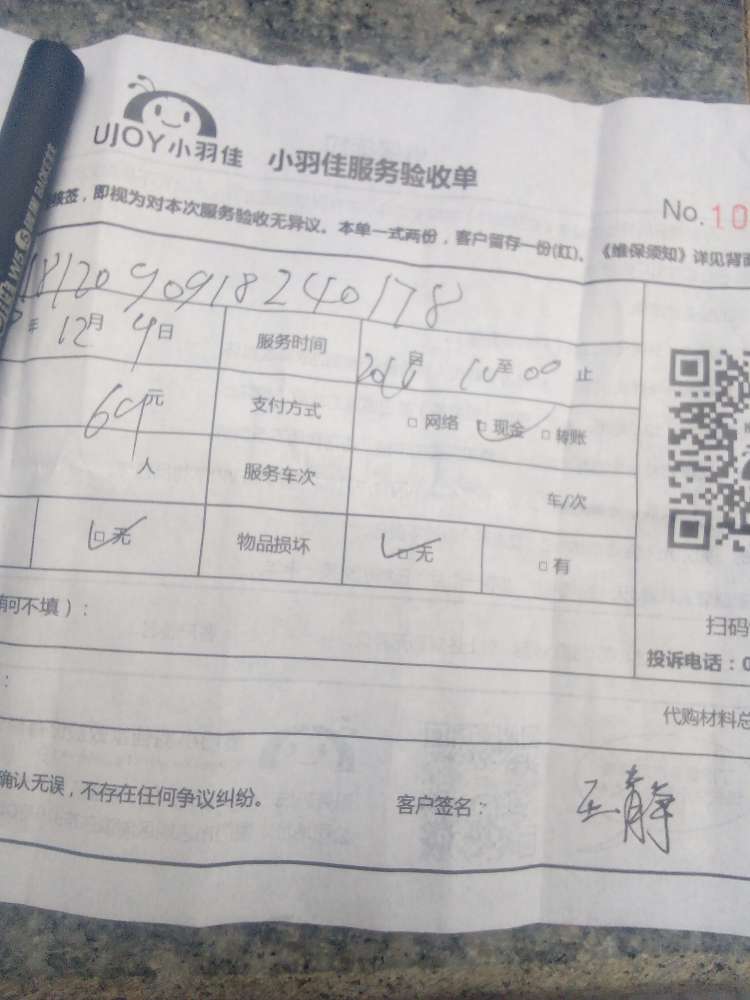 UJOY小羽佳 小羽佳服务验收单
No.10
签，即视为对本次服务验收无异议。本单一式两份，客户留存一份(红)。《维保须知》详见背面
1812090918240178
年 12月 9日 服务时间 自 至 00 止
69元 支付方式 网络 现金 转账
人 服务车次 车/次
无 物品损坏 无 有
可不填）：
扫码
投诉电话：0
：
代购材料总
确认无误，不存在任何争议纠纷。 客户签名： 王静